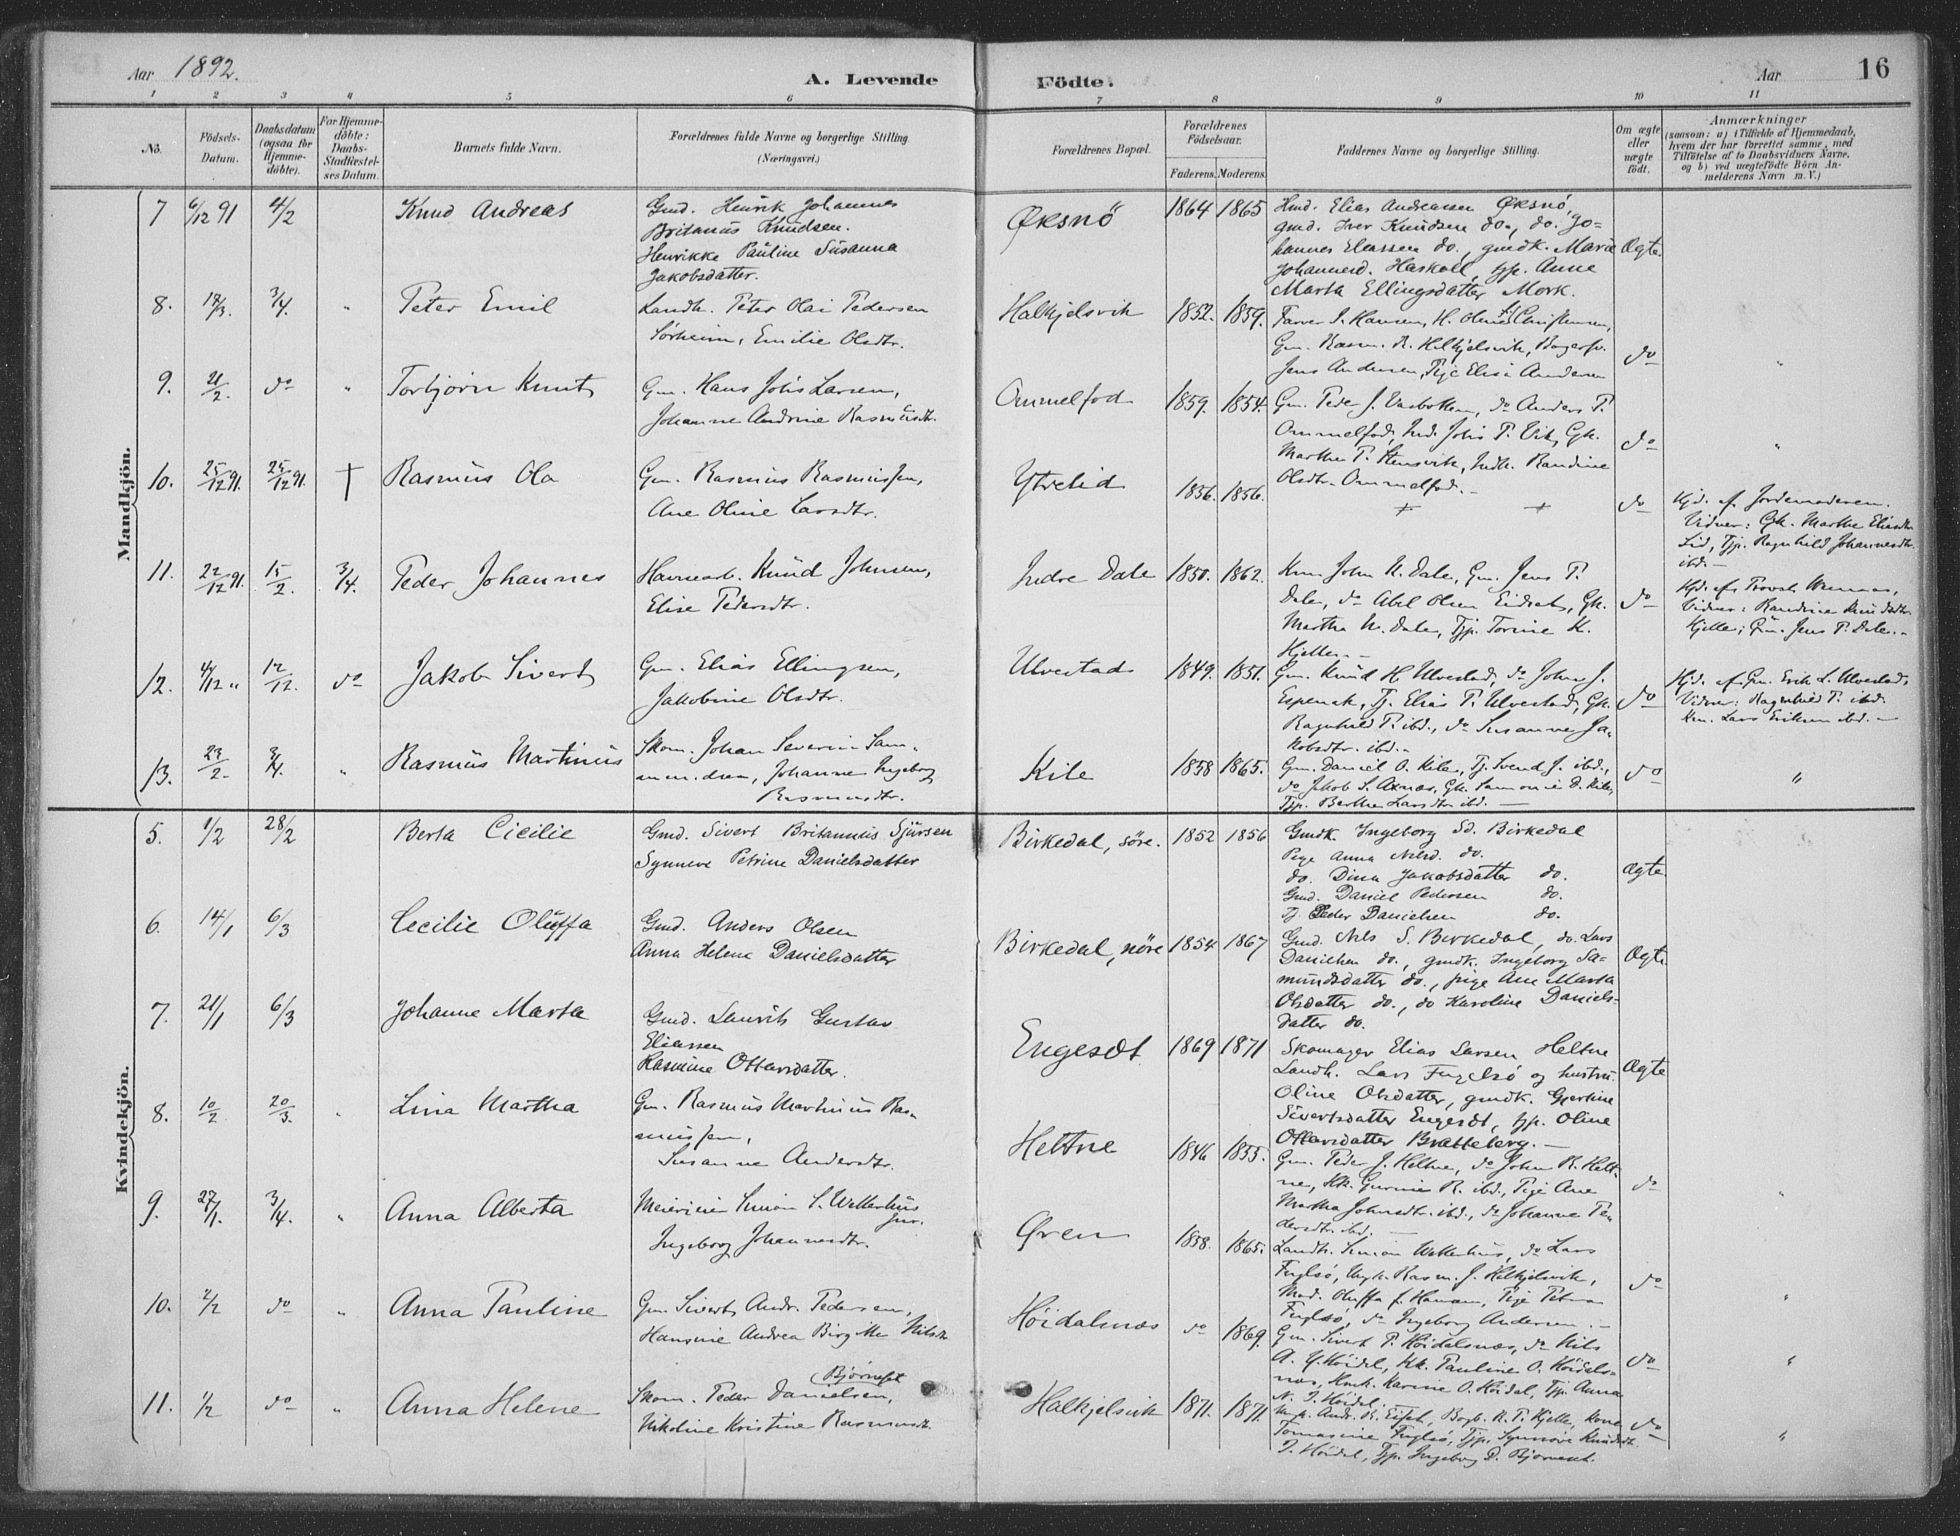 Aar 1892. A. Levende
Födte. Aar 16
1 2 3 4 5 6
7 8 9 10 11
No. Födsels-Datum. Daabsdatum (ogsaa for Hjemme-döbte). For Hjemme-döbte: Daabs-Stadfæstel-ses Datum. Barnets fulde Navn. Forældrenes fulde Navne og borgerlige Stilling. (Næringsvei.)
Forældrenes Bopæl. Forældrenes Födselsaar. Faderens. Moderens. Faddernes Navne og borgerlige Stilling. Om ægte eller uægte födt. Anmærkninger (saasom: a) i Tilfælde af Hjemmedaab, hvem der har forrettet samme, med Tilföielse af to Daabsvidners Navne, og b) ved uægtefödte Börn Anmelderens Navn m. V.)
Mandkjön.
7 6/12 91 4/2 Knud Andreas Gmd. Henrik Johannes
Britanus Knudsen.
Henrikke Pauline Susanna
Jakobsdatter.
Øksnö 1864 1865 Hmd. Elias Andreassen Øksnö,
gmd. Iver Knudsen do., do. Jo-
hannes Eliassen do., gmdk. Marie Ægte.
Johannesd. Haskoll, tjp. Anne
Marta Ellingsdatter Mork.
8. 3/4. " Peter Emil Landh. Peter Olai Pedersen
Sørheim, Emilie Olsdtr.
Halkjelsvik 1852. 1859. Farver J. Hansen, H. Christensen,
Gm. Rasm. R. Helkjelsvik, do
Jens Andersen, Pige Elise Andersen "
9. 21/2. do " Torbjørn Knut Gm. Hans Johs Larsen,
Johanne Andrine Rasmusdtr.
Ommelfod 1859. 1854. Gm. Peder J. do Anders P.
Ommelfod, Ind. Johs P. Vik, Gk. do "
Marthe P. Stensvik, Indk. Randine
Olsdtr. Ommelfod.
10. 25/12 91. 25/12 91. † Rasmus Ola Gm. Rasmus Rasmussen,
Ane Oline Larsdtr.
Ytrelid 1856. 1856. + + do Hjd. af Jordemoderen.
Vidner: Gk. Marthe Eliasdtr
Lid, Tjp. Ragnhild Johannesdtr.
ibd.
11. 22/12 91. 15/2. 3/4. Peder Johannes Havnearb. Knud Johnsen,
Elise Pedersdtr.
Indre Dale 1850. 1862. Km. John K. Dale, Gm. Jens P.
Dale, do Abel Olsen Eidset, Gk. do
Martha N. Dale, Tjp. Torine K.
Kjelle.
Hjd. af Provst
Vidner: Randine Knudsdtr.
Kjelle; Gm. Jens P. Dale.
12. 4/12 " 12/12. do Jakob Sivert Gm. Elias Ellingsen,
Jakobine Olsdtr.
Ulvestad 1849. 1851. Gm. Knud H. Ulvestad, do John J.
Espenak, Tj. Elias P. Ulvestad, Gk. do
Ragnhild P. ibd., do Susanne Ja-
kobsdtr. ibd.
Hjd. af Gm. Erik L. Ulvestad,
Vidner: Ragnhild P. ibd.
Km. Lars Eriksen ibd.
13. 23/2. 3/4. " Rasmus Martinus Skom. Johan Severin Sam-
Johanne Ingeborg
Rasmusdtr.
Kile 1858 1865. Gm. Daniel O. Kile, Tj. Svend J. ibd., do "
do Jakob S. Axnæs, Gk. D. Kile,
Tjp. Berthe Larsdtr. ibd.
Kvindekjön.
5. 1/2 28/2 Berta Cicilie Gmd. Sivert Britannus Sjursen
Synneve Petrine Danielsdatter
Birkedal, söre. 1852 1856 Gmdk. Ingeborg Sd. Birkedal
Pige Anna Nilsd. do.
do. Dina Jakobsdatter do. Ægte
Gmd. Daniel Pedersen do.
Tj. Peder Danielsen do.
6. 14/1 6/3 Cecilie Oluffa Gmd. Anders Olsen
Anna Helene Danielsdatter
Birkedal, nöre 1854 1867 Gmd. Nils S. Birkedal, do. Lars
Danielsen do., gmdk. Ingeborg Sa- Ægte
mundsdatter do., pige Ane Marta
Olsdatter do., do Karoline Daniels-
datter do.
7. 21/1 6/3 Johanne Marta Gmd. Laurits Gustav
Eliassen
Rasmine Ottarsdatter.
Engesæt 1869 1871 Skomager Elias Larsen Heltne
Landh. Lars Fuglsö og hustru Ægte
Oline Olsdatter, gmdk. Gjertine
Sivertsdatter Engesæt, tjp. Oline
Ottarsdatter Bratteberg.
8. 10/2 20/3. " Lina Martha Gm. Rasmus Martinus Ras-
mussen,
Susanne Andersdtr.
Heltne 1846 1855. Gm. Peder J. Heltne, do John R. Helt-
ne, Kk. Gurine R. ibd., Pige Ane do "
Martha Johnsdtr. ibd., do Johanne Pe-
dersdtr. ibd.
9. 27/1. 3/4. " Anna Alberta Meierieier Simon S. Welterhus
jur.
Ingeborg Johannesdtr.
Øren 1858. 1865. Landh. Simon Welterhus, do Lars
Fuglsö, Ungk. Rasm. J. Helkjelsvik, do "
Mad. Oluffa f. Hansen, Pige Petra
Fuglsö, do Ingeborg Andersen.
10. 2/2 do " Anna Pauline Gm. Sivert Andr. Pedersen,
Hansine Andrea Birgitte Nilsdtr
Höidalsnæs do 1869. Gm. Sivert P. Höidalsnæs, do Nils
A. Y. Höidal, Kk. Pauline O. Höidals- do "
næs, Karine O. Höidal, Tjp. Anna
N. I. Höidal.
11. 1/2 do " Anna Helene Skom. Peder Danielsen, (Bjørneset
Nikoline Kristine Rasmusdtr.
Halkjelsvik 1871. 1871. Ungk. Andr. R. Eiset, Bogb. K. P. Kjelle, Kone do "
Tomasine Fuglsö, Tjp. Synnöve Knudsdtr.
I. Höidal, Tjp. Ingeborg D. Bjørneset.